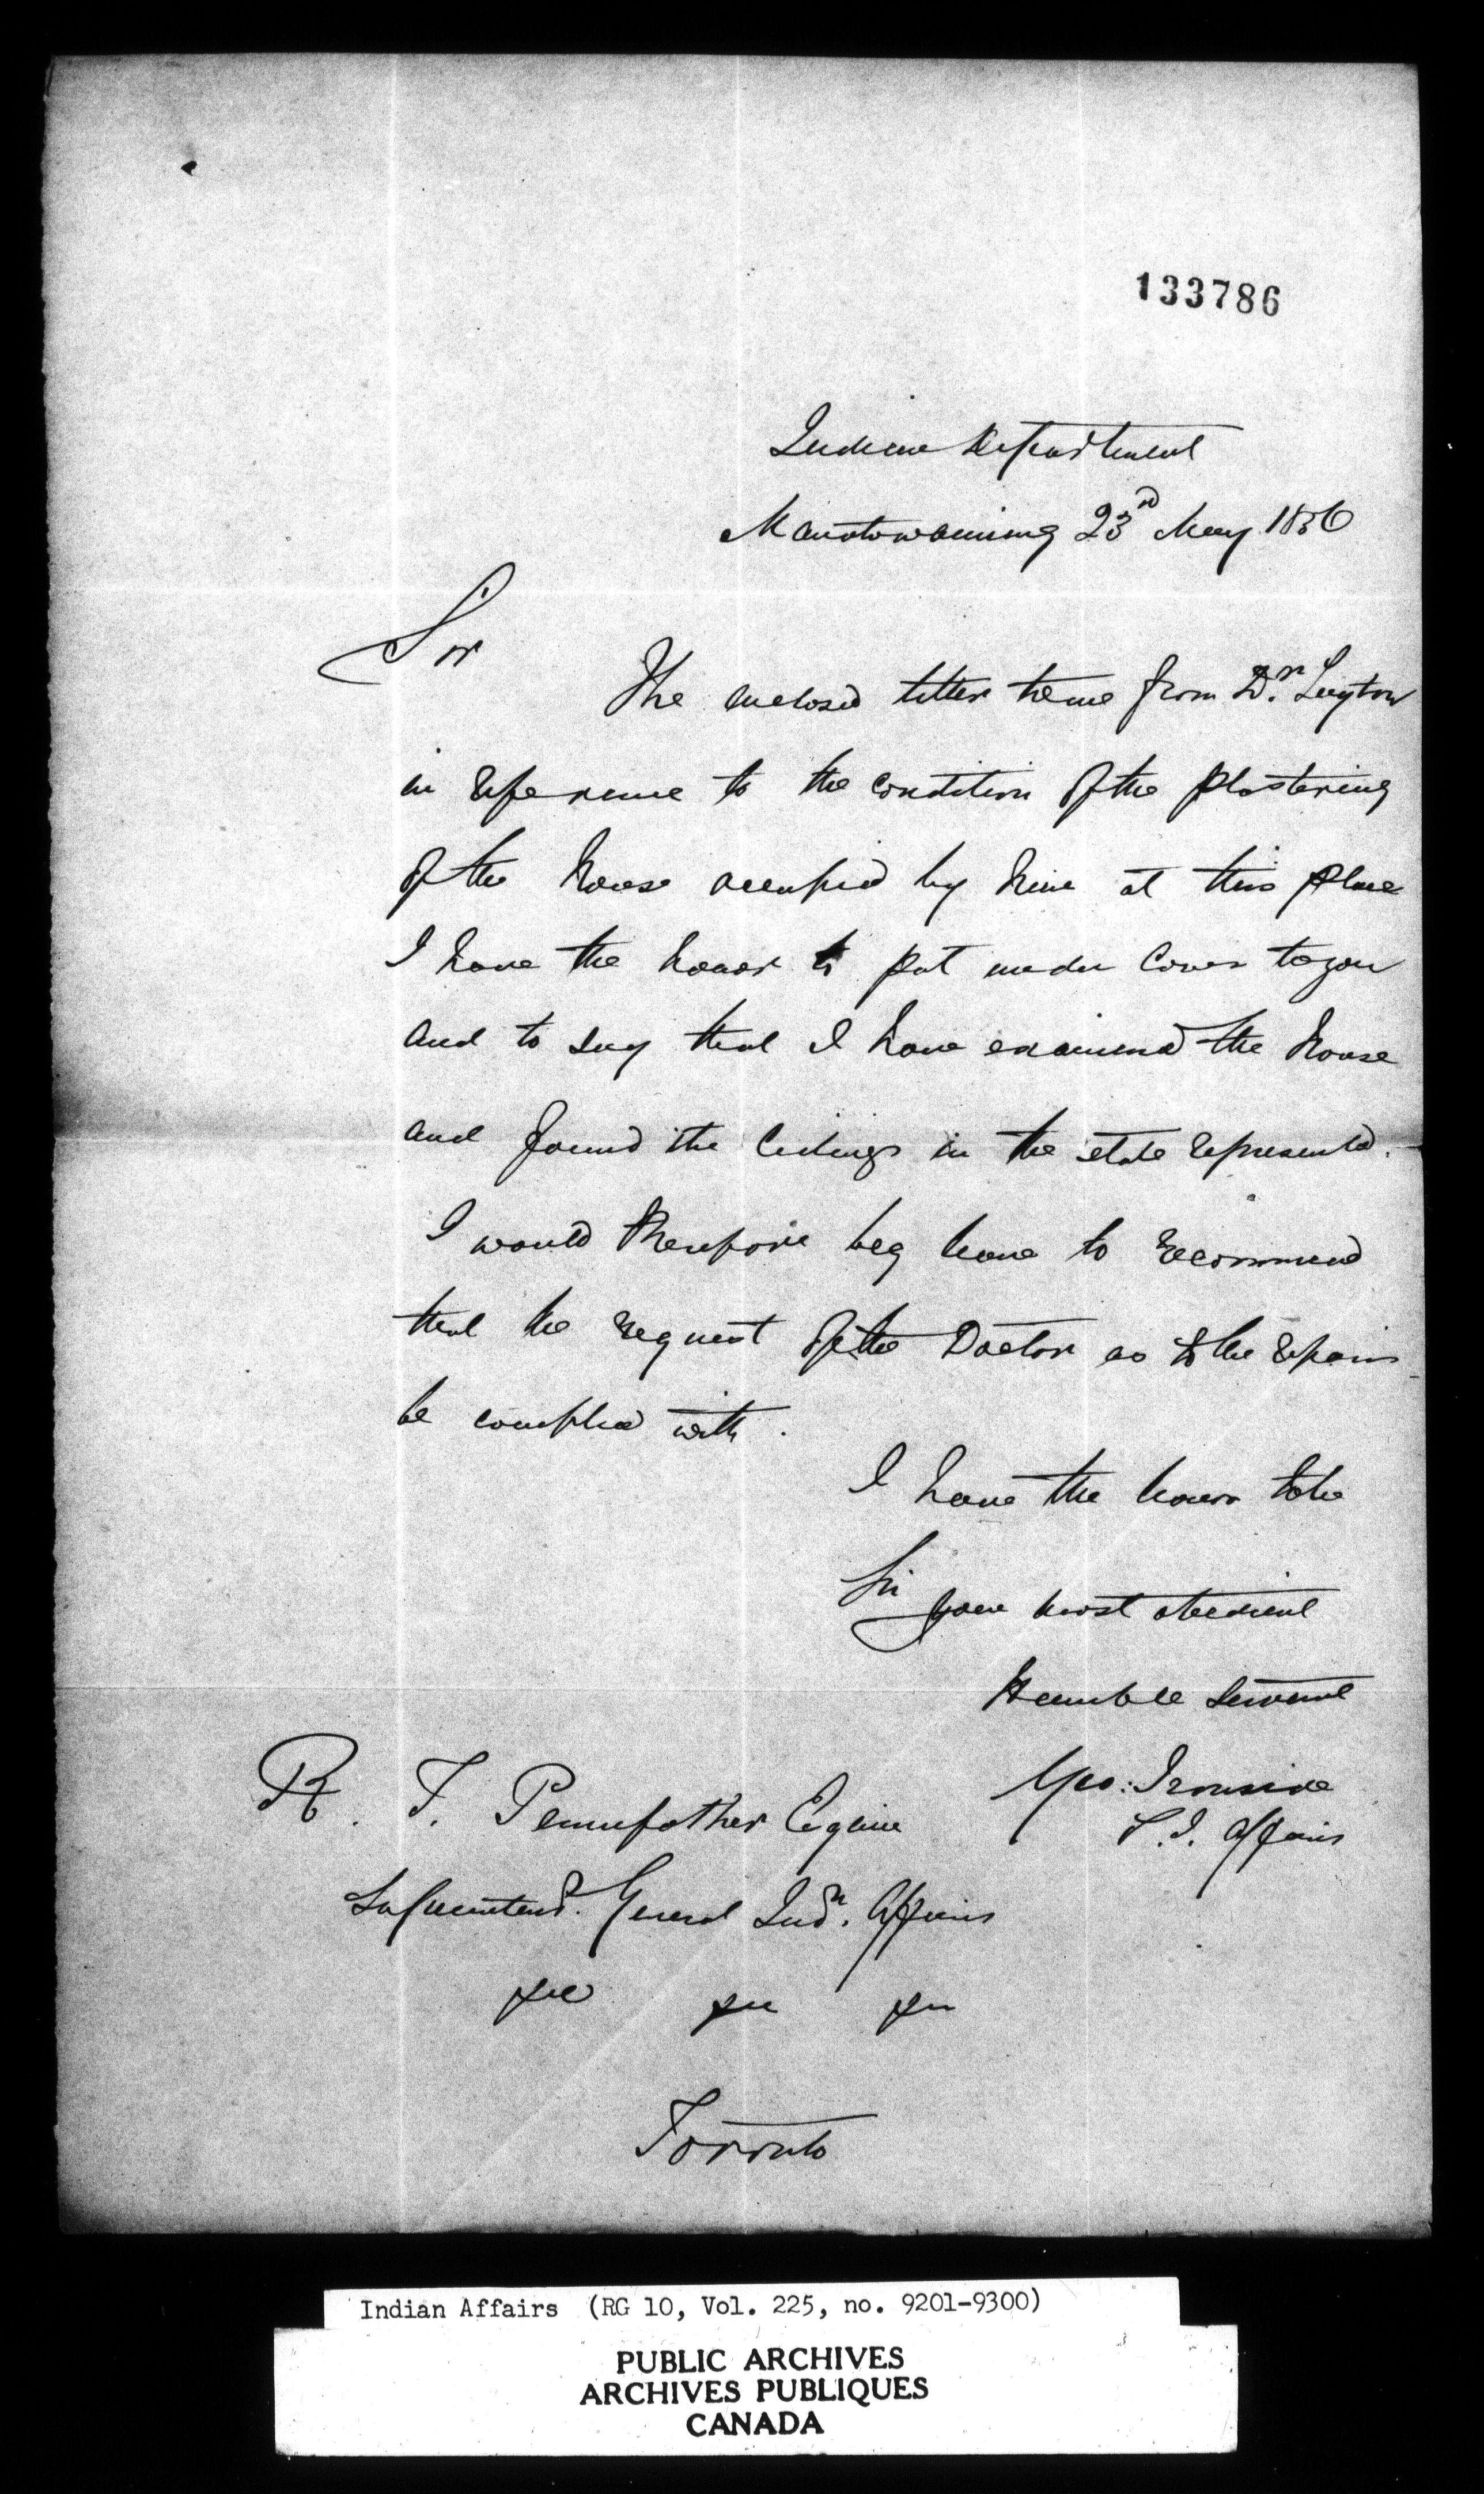 133786
Indian Department
Manitowaning 23rd May 1856
Sir
The enclosed letter to me from Dr. Layton
in reference to the condition of the plastering
of the house occupied by him at this place
I have the honor to put under Cover to you
and to say that I have examined the house
and found the Ceilings in the state represented.
I would therefore beg leave to recommend
that the request of the Doctor as to the repairs
be complied with.
I have the honor to be
Sir
your most obedient
Humble servant
Geo: Ironside
S. I. Affairs
R. T. Pennefather Esquire
Superintend. General Indn. Affairs
Toronto
Indian Affairs (RG 10, Vol. 225, no. 9201-9300)
PUBLIC ARCHIVES
ARCHIVES PUBLIQUES
CANADA